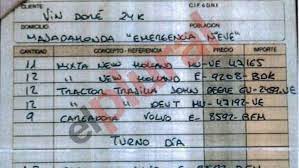 CLIENTE
C.I.F. ó D.N.I.
VIN DORÉ 24K
DOMICILIO POBLACIÓN
MAJADAHONDA "EMERGENCIA NIEVE"
CANTIDAD CONCEPTO - REFERENCIA PRECIO
11 MIXTA NEW HOLLAND MU-VE 47165
12 " NEW HOLLAND E-9208-BDK
12 TRACTOR TRAILLA JOHN DEERE GU-VE
12 " " DEUT MU-47192-VE
9 CARGADORA VOLVO E-8592-BFM
TURNO DÍA
E-8592-BFM
elplural